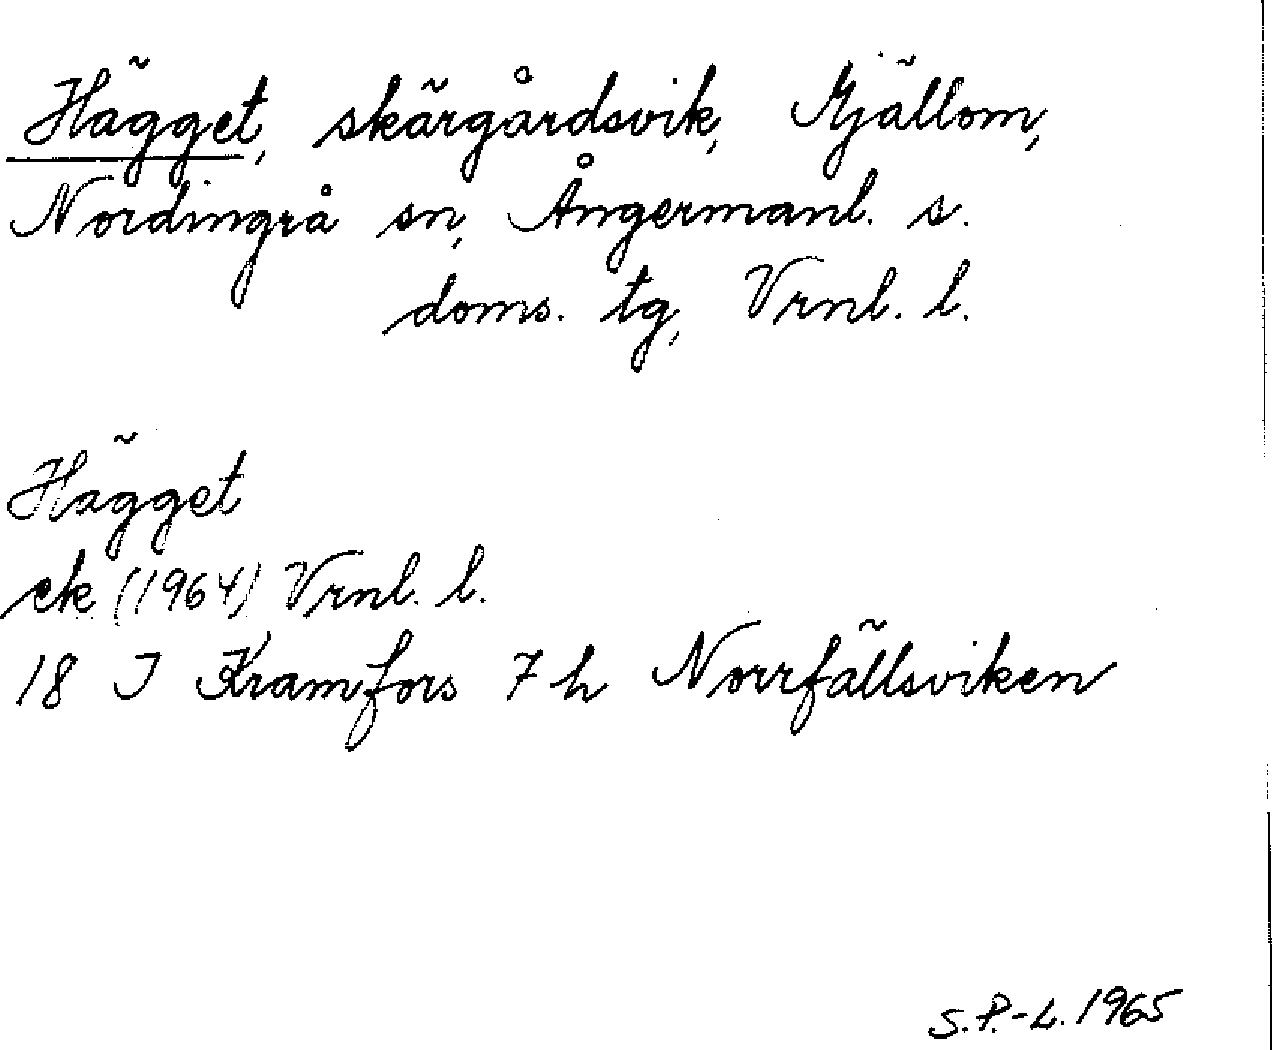 Hägget, skärgårdsvik, Mjällom,
Nordingrå sn, Ångermanl. s.
doms. tg, Vrnl. l.
Hägget
ek (1964) Vrnl. l.
18 I Kramfors 7 h Norrfällsviken
S.P.-L. 1965